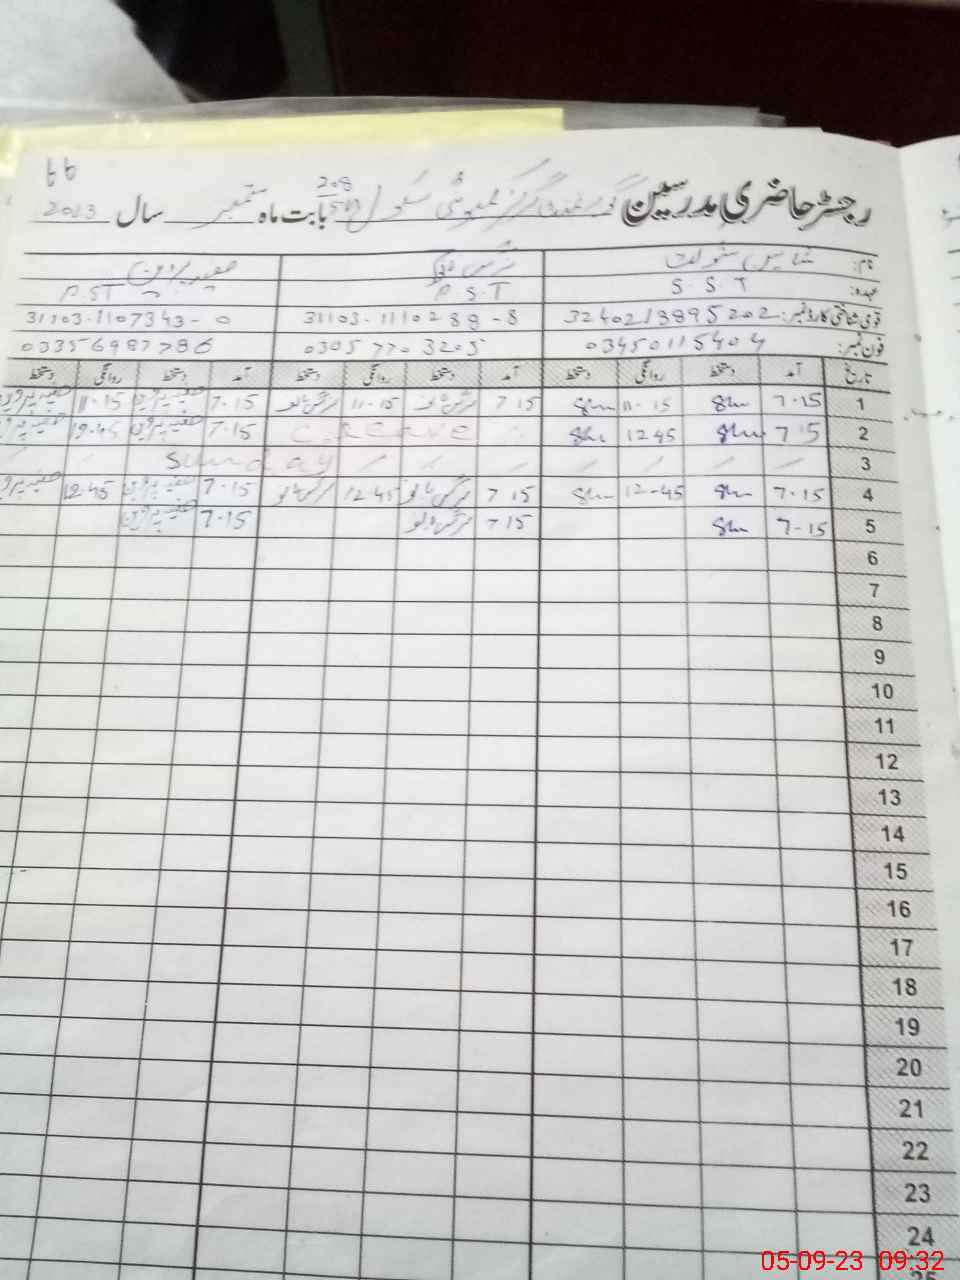 رجسٹر حاضری مدرسین گورنمنٹ گرلز کمیونٹی سکول 208 بابت ماہ ستمبر سال 2023
نام: شوکت نرگس بانو صفیہ پروین
عہدہ: S.S.T P.S.T P.ST
قومی شناختی کارڈ نمبر: 3240213895202 31103-1110288-8 31103-1107343-0
فون نمبر: 03450115404 0305 7703205 03356987786
تاریخ آمد دستخط روانگی دستخط آمد دستخط روانگی دستخط آمد دستخط روانگی دستخط
1 7-15 11-15 7 15 نرگس بانو 11-15 نرگس بانو 7-15 صفیہ پروین 11-15 صفیہ پروین
2 7 15 12 45 C. Leave 7-15 صفیہ پروین 12-45 صفیہ پروین
3 Sunday
4 7-15 12-45 7 15 نرگس بانو 12-45 نرگس بانو 7-15 صفیہ پروین 12-45 صفیہ پروین
5 7-15 7 15 نرگس بانو 7-15 صفیہ پروین
6
7
8
9
10
11
12
13
14
15
16
17
18
19
20
21
22
23
24
25
05-09-23 09:32